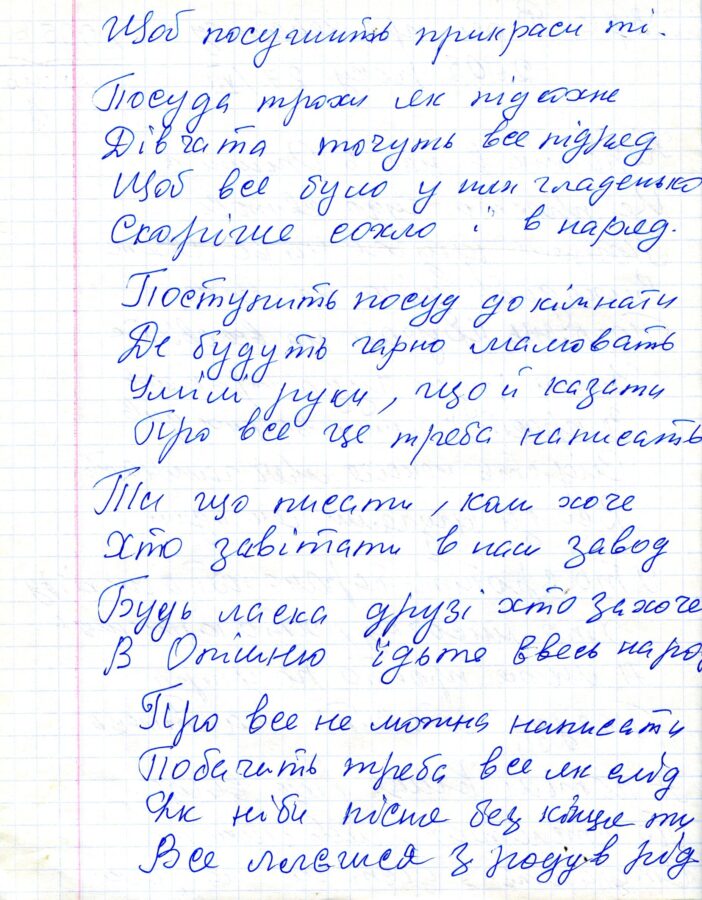 Щоб посушить прикраси ті.
Посуда трохи як підсохне
Дівчата точуть все підряд
Щоб все було у них гладенько
Скоріше сохло і в наряд.
Поступить посуд до кімнати
Де будуть гарно малювать
Умілі руки, що й казати
Про все це треба написать
Та що писати, коли хоче
Хто завітати в наш завод
Будь ласка друзі хто захоче
В Опішню їдьте ввесь народ
Про все не можна написати
Побачить треба все як слід
Як ніби пісня без кінця ти
Все лиєшся з роду в рід